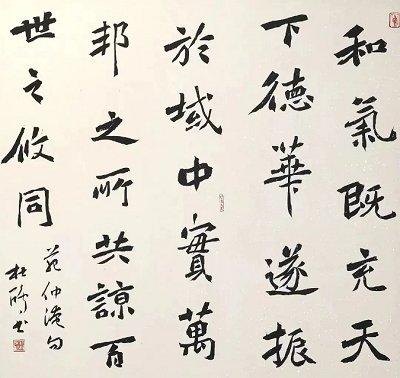 和氣既充天
下德華遂振
於域中實萬
邦之所共諒百
世之攸同
范仲淹句
杜 书